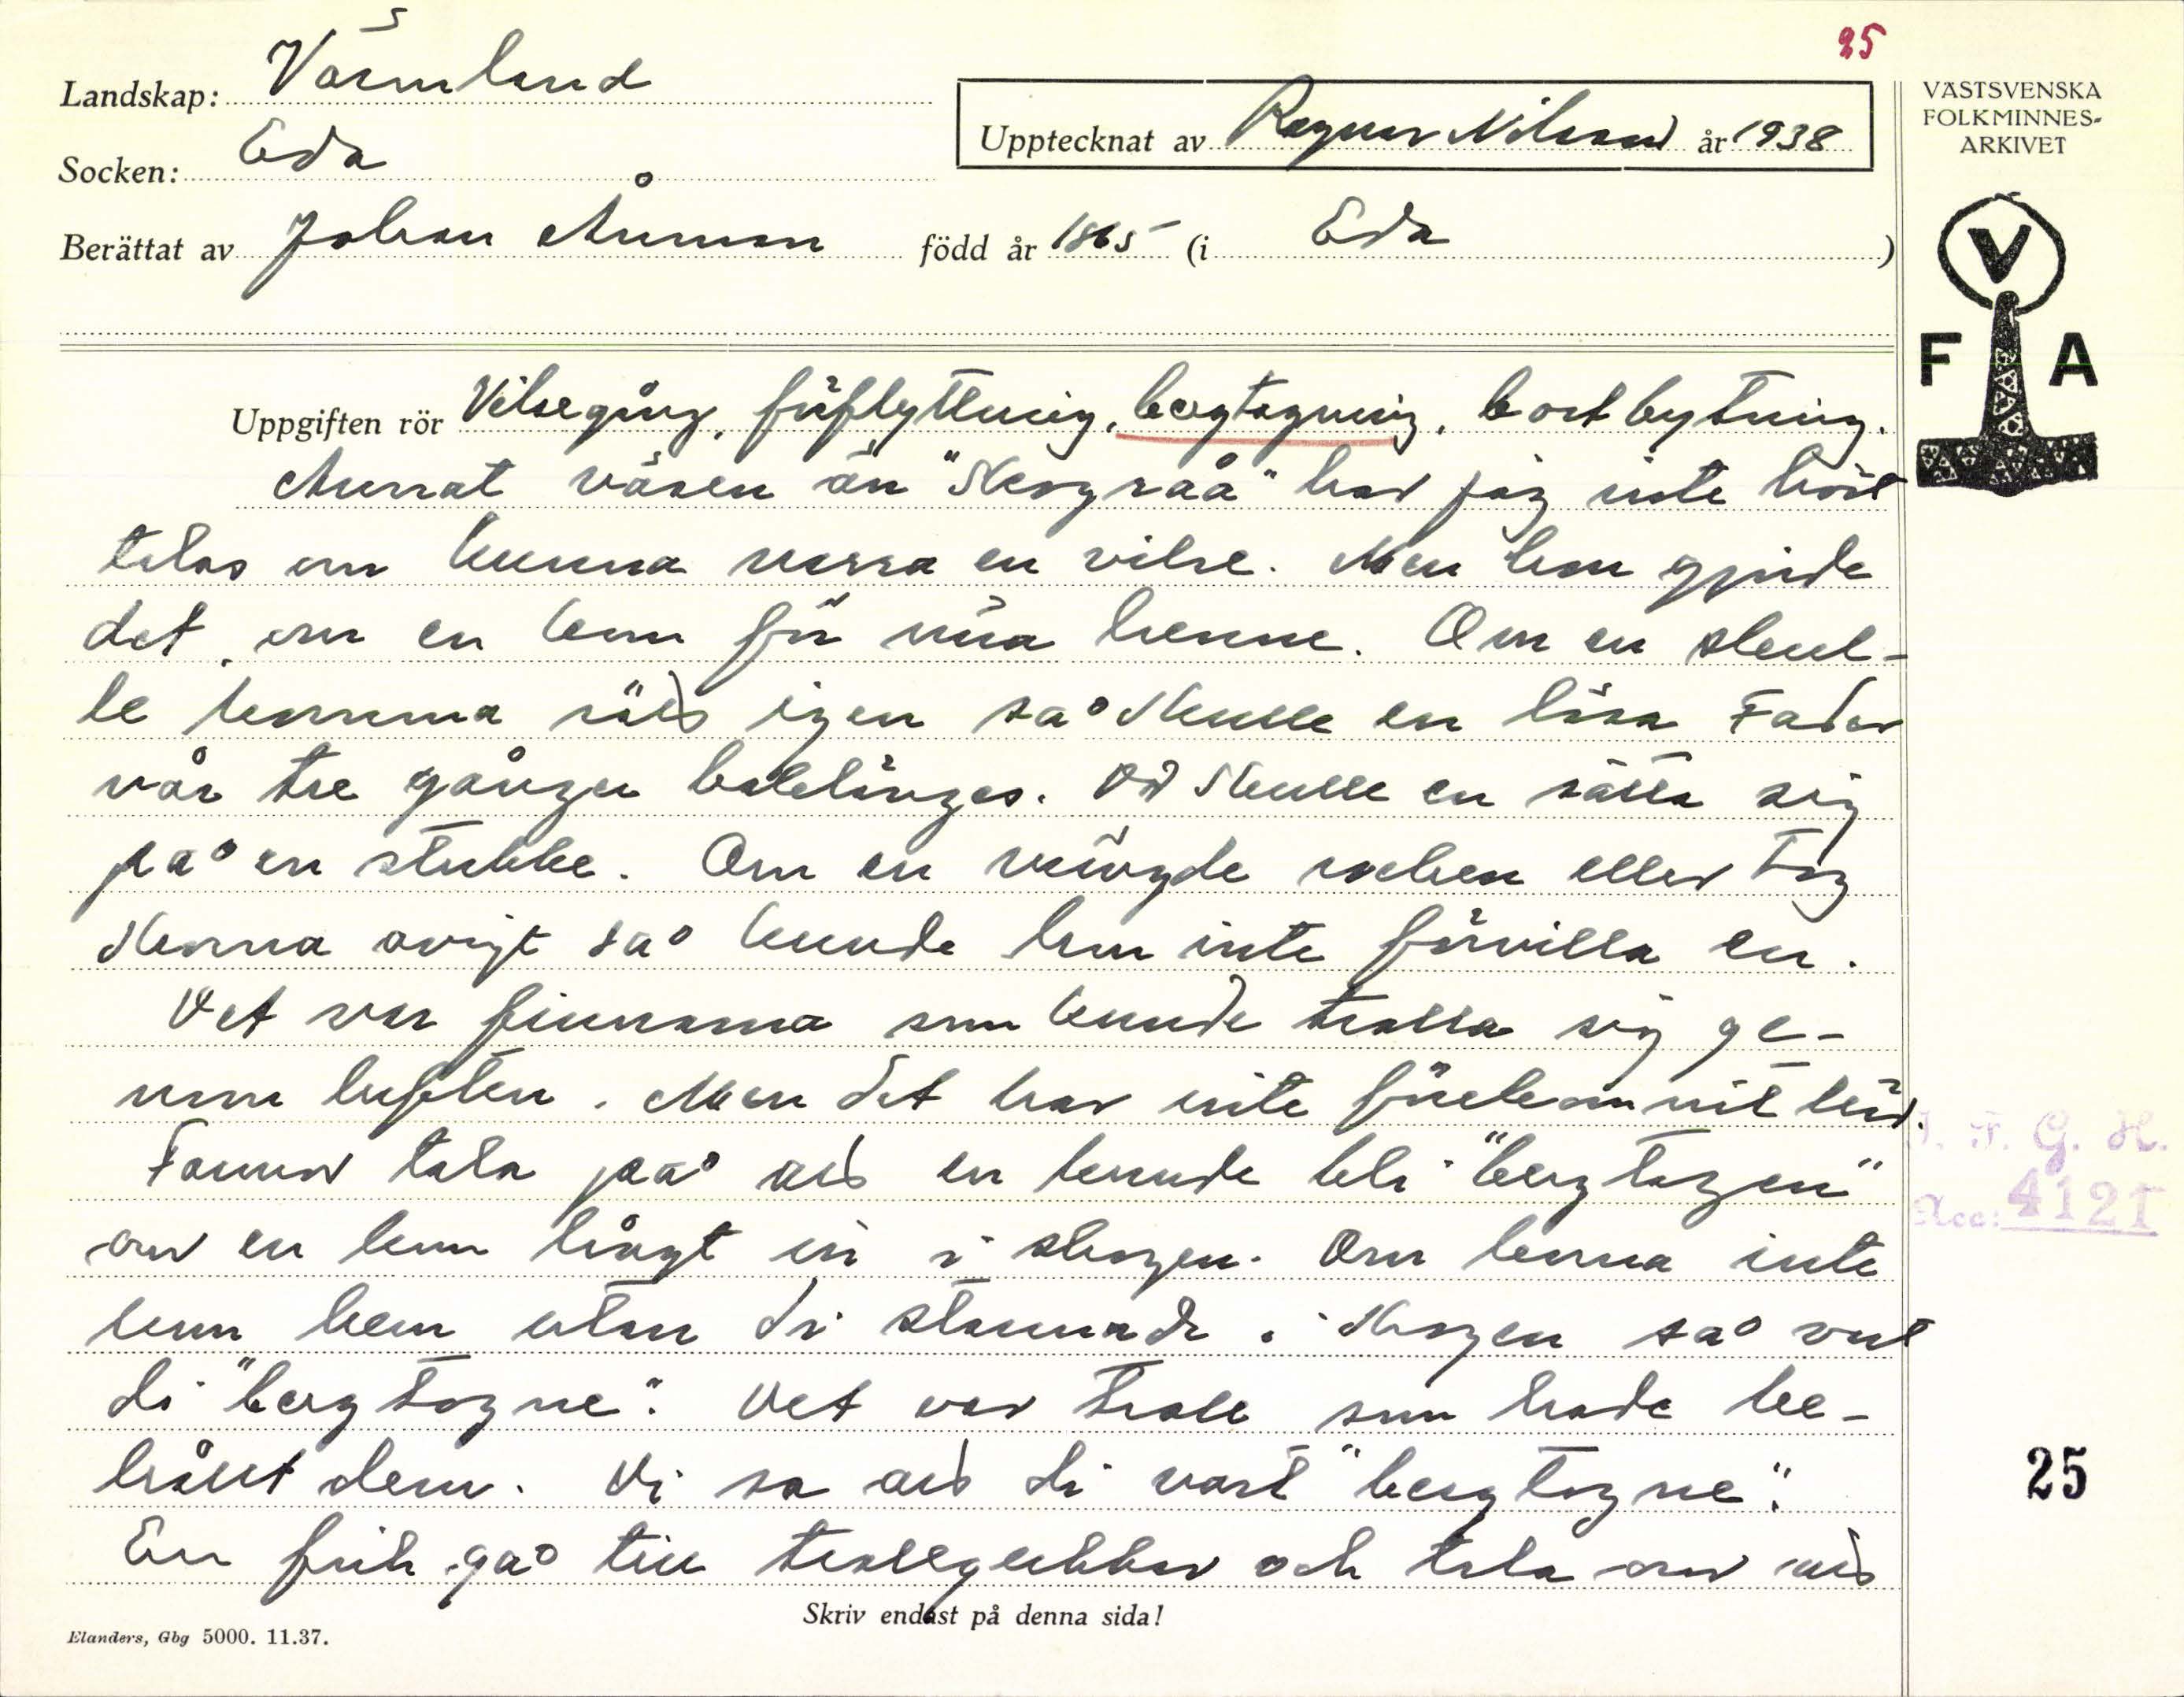 25
Landskap: Värmland
Socken: Eda
Upptecknat av Ragnar Nilsson år 1938
Berättat av Johan Åman född år 1865 (i Eda)
VÄSTSVENSKA
FOLKMINNES-
ARKIVET
V
F A
Uppgiften rör Vilsegång, förflyttning, bergtagning, bortbytning.
Annat väsen än "Skogsråa" har jag inte hört
talas om kunna vessa en vilse. Men hon gjorde
det, om en kom för nära henne. Om en skul-
le komma rätt igen så skulle en läsa Fader
vår tre gånger baklänges. Då skulle en sätta sig
på en stubbe. Om en vängde rocken eller tog
skorna avigt så kunde hon inte förvilla en.
Det var finnarna som kunde trolla sig ge-
nom luften. Men det har inte förekommit här.
Di tala på att en kunde bli "bergtagen"
om en kom långt in i skogen. Om korna inte
kom hem utan di stannade i skogen så vart
di "bergtogne". Det var troll som hade be-
hållit dem. Vi sa att di vart "bergtogne".
En fick gå till trollgubbar och tala om att
Skriv endast på denna sida!
Elanders, Gbg 5000. 11.37.
I. F. G. H.
Acc: 4121
25